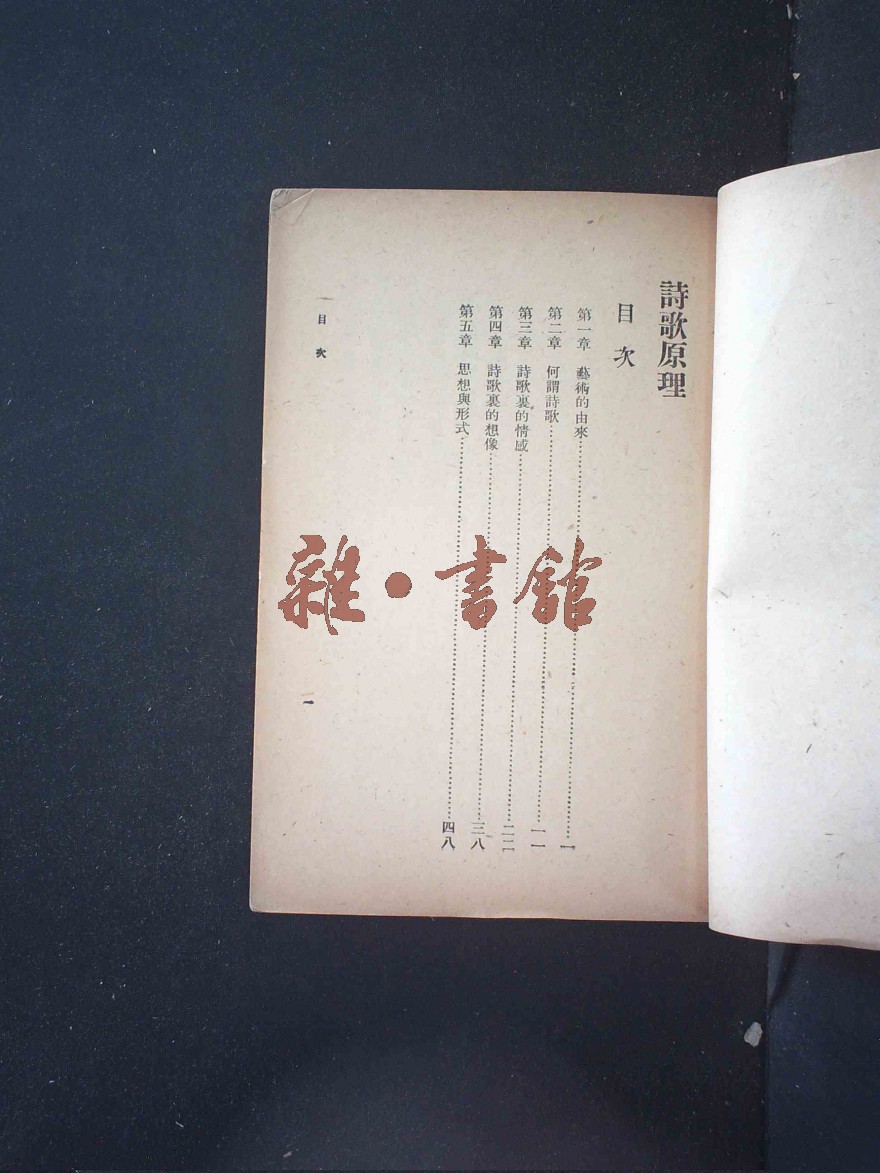 詩歌原理
目次
第一章 藝術的由來……一
第二章 何謂詩歌……一一
第三章 詩歌裏的情感……二二
第四章 詩歌裏的想像……三八
第五章 思想與形式……四八
目次
一
雜·書館